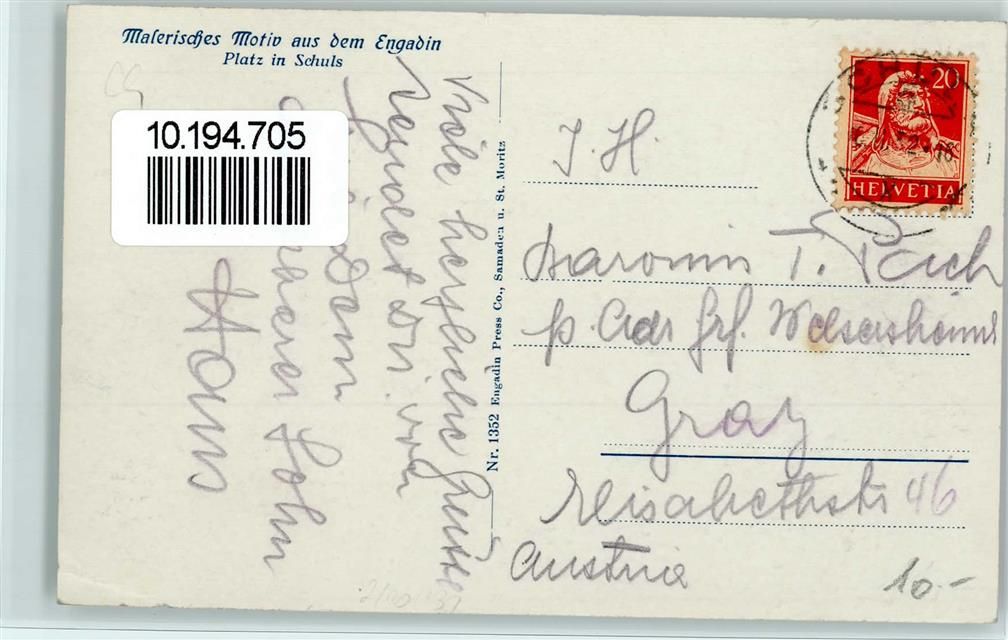 Malerisches Motiv aus dem Engadin
Platz in Schuls
10.194.705
Viele herzliche Grüsse
sendet Dir von
Dein
Sohn
Hans
Nr. 1352 Engadin Press Co., Samaden u. St. Moritz
20
HELVETIA
I. H.
Baronin T.
p. Adr. Grf. Welsersheimb
Graz
Elisabethstr 46
Austria
10.-